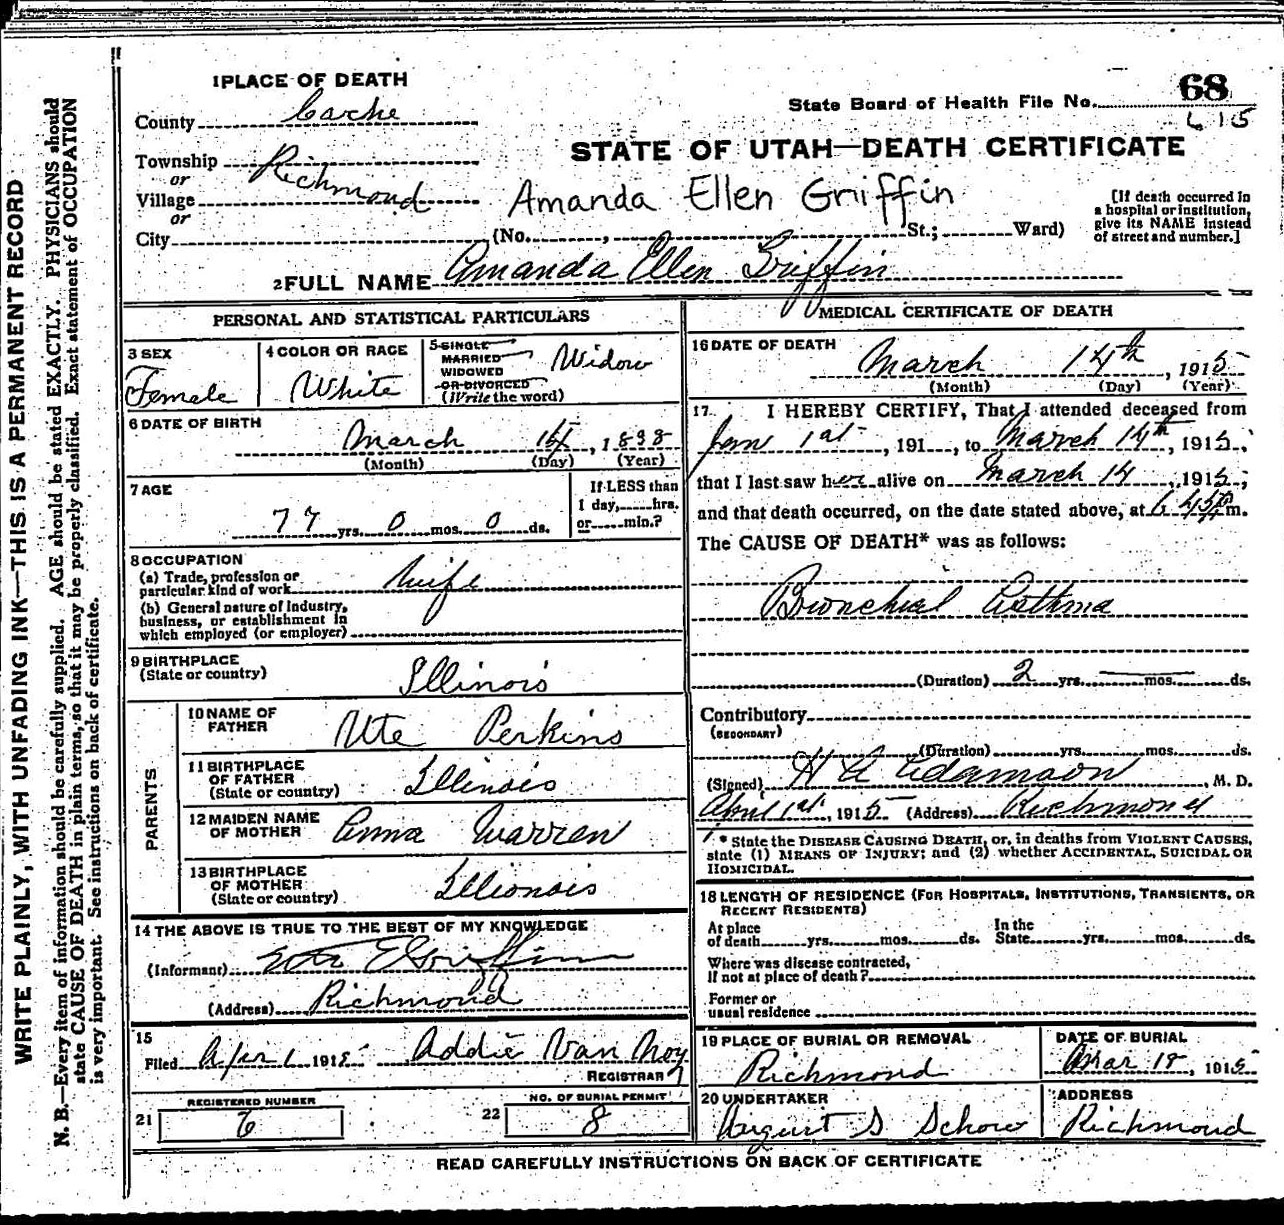 1 PLACE OF DEATH
68
State Board of Health File No. 615
County Cache
STATE OF UTAH—DEATH CERTIFICATE
Township Richmond
or
Village
or
Amanda Ellen Griffin
[If death occurred in
a hospital or institution,
give its NAME instead
of street and number.]
City (No. , St.; Ward)
2 FULL NAME Amanda Ellen Griffin
PERSONAL AND STATISTICAL PARTICULARS
3 SEX
Female
4 COLOR OR RACE
White
5 SINGLE
MARRIED
WIDOWED
OR DIVORCED
(Write the word)
Widow
6 DATE OF BIRTH
March 14, 1838
(Month) (Day) (Year)
7 AGE
77 yrs. 0 mos. 0 ds.
If LESS than
1 day, hrs.
or min.?
8 OCCUPATION
(a) Trade, profession or
particular kind of work Wife
(b) General nature of industry,
business, or establishment in
which employed (or employer)
9 BIRTHPLACE
(State or country) Illinois
PARENTS
10 NAME OF
FATHER Ute Perkins
11 BIRTHPLACE
OF FATHER
(State or country) Illinois
12 MAIDEN NAME
OF MOTHER Anna Warren
13 BIRTHPLACE
OF MOTHER
(State or country) Illionois
14 THE ABOVE IS TRUE TO THE BEST OF MY KNOWLEDGE
(Informant) E Griffin
(Address) Richmond
15
Filed Apr 1 1915 Addie Van Noy
REGISTRAR
21 REGISTERED NUMBER
6
22 NO. OF BURIAL PERMIT
8
MEDICAL CERTIFICATE OF DEATH
16 DATE OF DEATH
March 14th, 1915
(Month) (Day) (Year)
17. I HEREBY CERTIFY, That I attended deceased from
Jan 1st, 191 , to March 14th, 1915,
that I last saw her alive on March 14, 1915,
and that death occurred, on the date stated above, at m.
The CAUSE OF DEATH* was as follows:
Bronchial Asthma
(Duration) 2 yrs. mos. ds.
Contributory
(SECONDARY)
(Duration) yrs. mos. ds.
(Signed) H A Adamson, M. D.
April 1st, 1915 (Address) Richmond
* State the DISEASE CAUSING DEATH, or, in deaths from VIOLENT CAUSES,
state (1) MEANS OF INJURY; and (2) whether ACCIDENTAL, SUICIDAL OR
HOMICIDAL.
18 LENGTH OF RESIDENCE (FOR HOSPITALS, INSTITUTIONS, TRANSIENTS, OR
RECENT RESIDENTS)
At place
of death yrs. mos. ds.
In the
State yrs. mos. ds.
Where was disease contracted,
if not at place of death?
Former or
usual residence
19 PLACE OF BURIAL OR REMOVAL
Richmond
DATE OF BURIAL
Mar 18, 1915
20 UNDERTAKER
August S Schow
ADDRESS
Richmond
READ CAREFULLY INSTRUCTIONS ON BACK OF CERTIFICATE
WRITE PLAINLY, WITH UNFADING INK—THIS IS A PERMANENT RECORD
N. B.—Every item of information should be carefully supplied. AGE should be stated EXACTLY. PHYSICIANS should
state CAUSE OF DEATH in plain terms, so that it may be properly classified. Exact statement of OCCUPATION
is very important. See instructions on back of certificate.